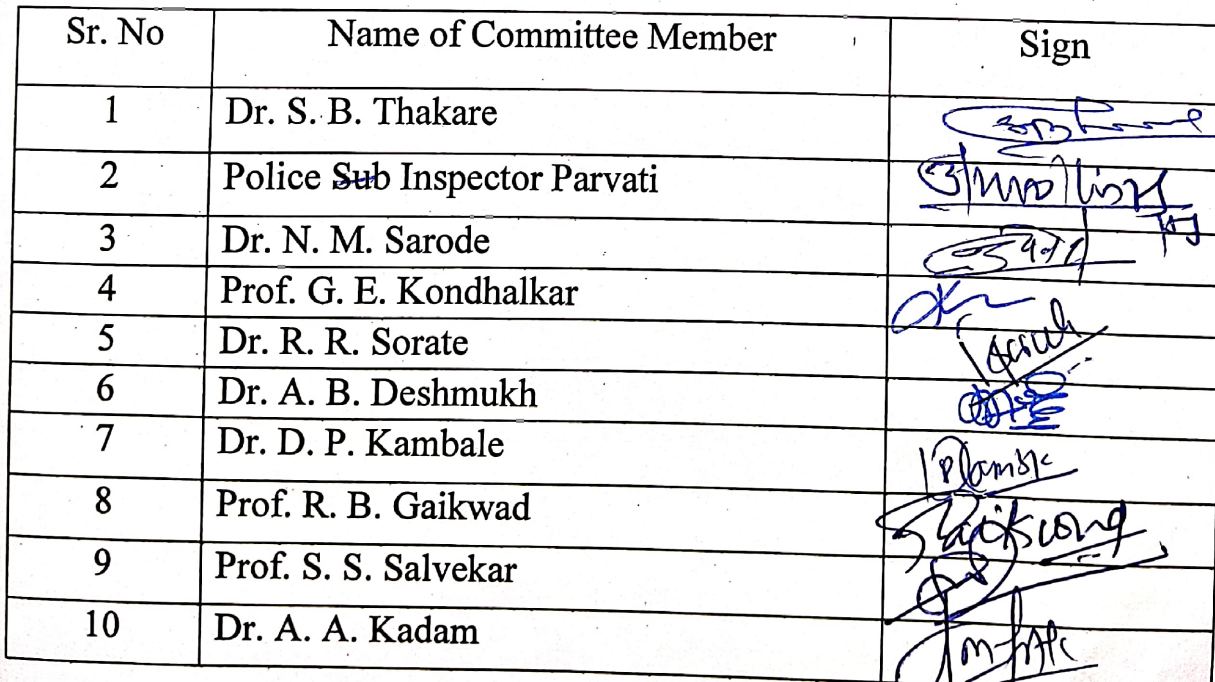 Sr. No Name of Committee Member Sign
1 Dr. S. B. Thakare
2 Police Sub Inspector Parvati
3 Dr. N. M. Sarode
4 Prof. G. E. Kondhalkar
5 Dr. R. R. Sorate
6 Dr. A. B. Deshmukh
7 Dr. D. P. Kambale
8 Prof. R. B. Gaikwad
9 Prof. S. S. Salvekar
10 Dr. A. A. Kadam